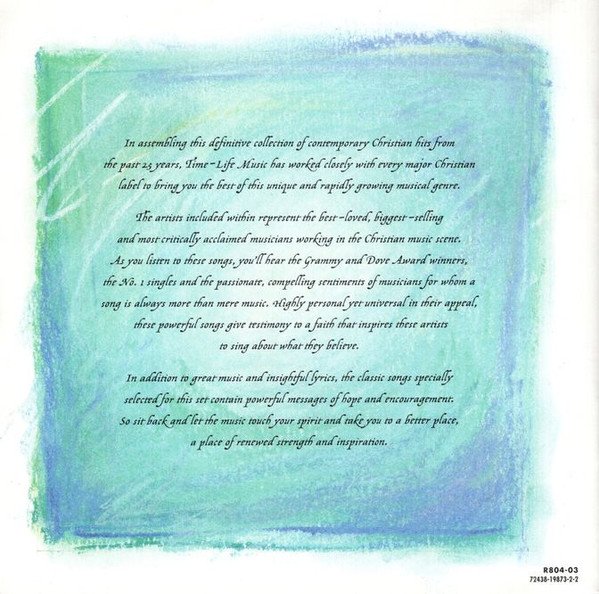 In assembling this definitive collection of contemporary Christian hits from
the past 25 years, Time-Life Music has worked closely with every major Christian
label to bring you the best of this unique and rapidly growing musical genre.
The artists included within represent the best-loved, biggest-selling
and most critically acclaimed musicians working in the Christian music scene.
As you listen to these songs, you'll hear the Grammy and Dove Award winners,
the No. 1 singles and the passionate, compelling sentiments of musicians for whom a
song is always more than mere music. Highly personal yet universal in their appeal,
these powerful songs give testimony to a faith that inspires these artists
to sing about what they believe.
In addition to great music and insightful lyrics, the classic songs specially
selected for this set contain powerful messages of hope and encouragement.
So sit back and let the music touch your spirit and take you to a better place,
a place of renewed strength and inspiration.
R804-03
72438-19873-2-2